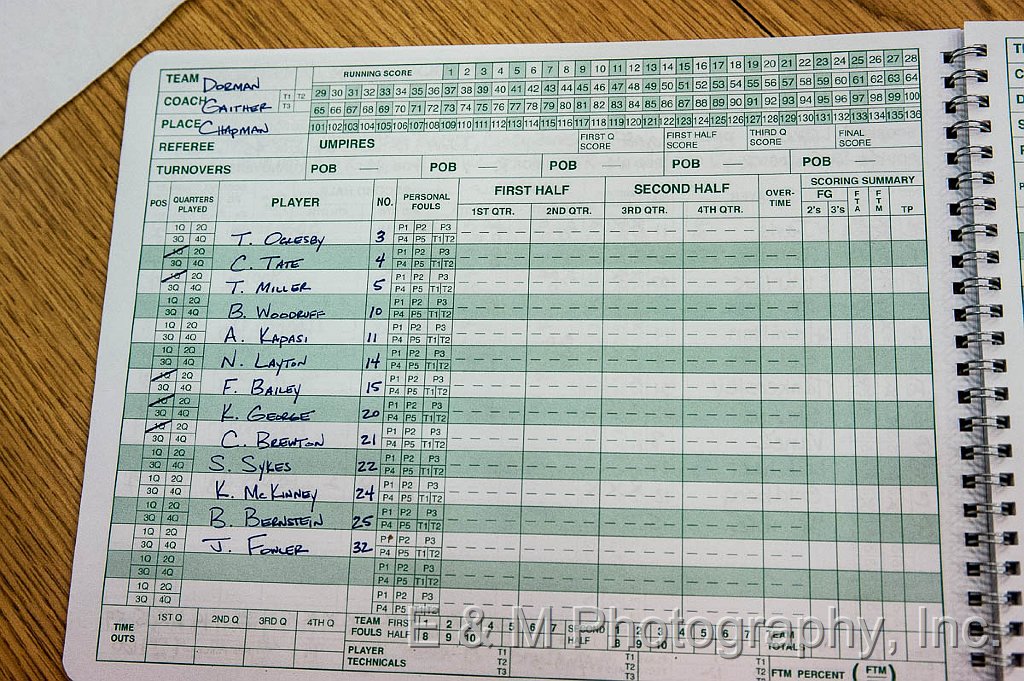 TEAM DORMAN RUNNING SCORE 1 2 3 4 5 6 7 8 9 10 11 12 13 14 15 16 17 18 19 20 21 22 23 24 25 26 27 28
29 30 31 32 33 34 35 36 37 38 39 40 41 42 43 44 45 46 47 48 49 50 51 52 53 54 55 56 57 58 59 60 61 62 63 64
COACH GAITHER T1 T2 T3 65 66 67 68 69 70 71 72 73 74 75 76 77 78 79 80 81 82 83 84 85 86 87 88 89 90 91 92 93 94 95 96 97 98 99 100
PLACE CHAPMAN 101 102 103 104 105 106 107 108 109 110 111 112 113 114 115 116 117 118 119 120 121 122 123 124 125 126 127 128 129 130 131 132 133 134 135 136
REFEREE UMPIRES FIRST Q SCORE FIRST HALF SCORE THIRD Q SCORE FINAL SCORE
TURNOVERS POB — POB — POB — POB — POB —
POS QUARTERS PLAYED PLAYER NO. PERSONAL FOULS FIRST HALF SECOND HALF OVER-TIME SCORING SUMMARY
1ST QTR. 2ND QTR. 3RD QTR. 4TH QTR. FG 2's 3's FTA FTM TP
1Q 2Q P1 P2 P3
3Q 4Q T. OGLESBY 3 P4 P5 T1 T2
1Q 2Q P1 P2 P3
3Q 4Q C. TATE 4 P4 P5 T1 T2
1Q 2Q P1 P2 P3
3Q 4Q T. MILLER 5 P4 P5 T1 T2
1Q 2Q P1 P2 P3
3Q 4Q B. WOODRUFF 10 P4 P5 T1 T2
1Q 2Q P1 P2 P3
3Q 4Q A. KAPASI 11 P4 P5 T1 T2
1Q 2Q P1 P2 P3
3Q 4Q N. LAYTON 14 P4 P5 T1 T2
1Q 2Q P1 P2 P3
3Q 4Q F. BAILEY 15 P4 P5 T1 T2
1Q 2Q P1 P2 P3
3Q 4Q K. GEORGE 20 P4 P5 T1 T2
1Q 2Q P1 P2 P3
3Q 4Q C. BREWTON 21 P4 P5 T1 T2
1Q 2Q P1 P2 P3
3Q 4Q S. SYKES 22 P4 P5 T1 T2
1Q 2Q P1 P2 P3
3Q 4Q K. MCKINNEY 24 P4 P5 T1 T2
1Q 2Q P1 P2 P3
3Q 4Q B. BERNSTEIN 25 P4 P5 T1 T2
1Q 2Q P1 P2 P3
3Q 4Q J. FOWLER 32 P4 P5 T1 T2
1Q 2Q P1 P2 P3
3Q 4Q P4 P5 T1 T2
1Q 2Q P1 P2 P3
3Q 4Q P4 P5
TIME OUTS 1ST Q 2ND Q 3RD Q 4TH Q TEAM FOULS FIRST HALF 1 2 3 4 5 6 7 8 9 10 SECOND HALF 1 2 3 4 5 6 7 8 9 10 TEAM TOTALS
PLAYER TECHNICALS T1 T2 T3 T1 T2 T3 T1 T2 FTM PERCENT (FTM)
E & M Photography, Inc.